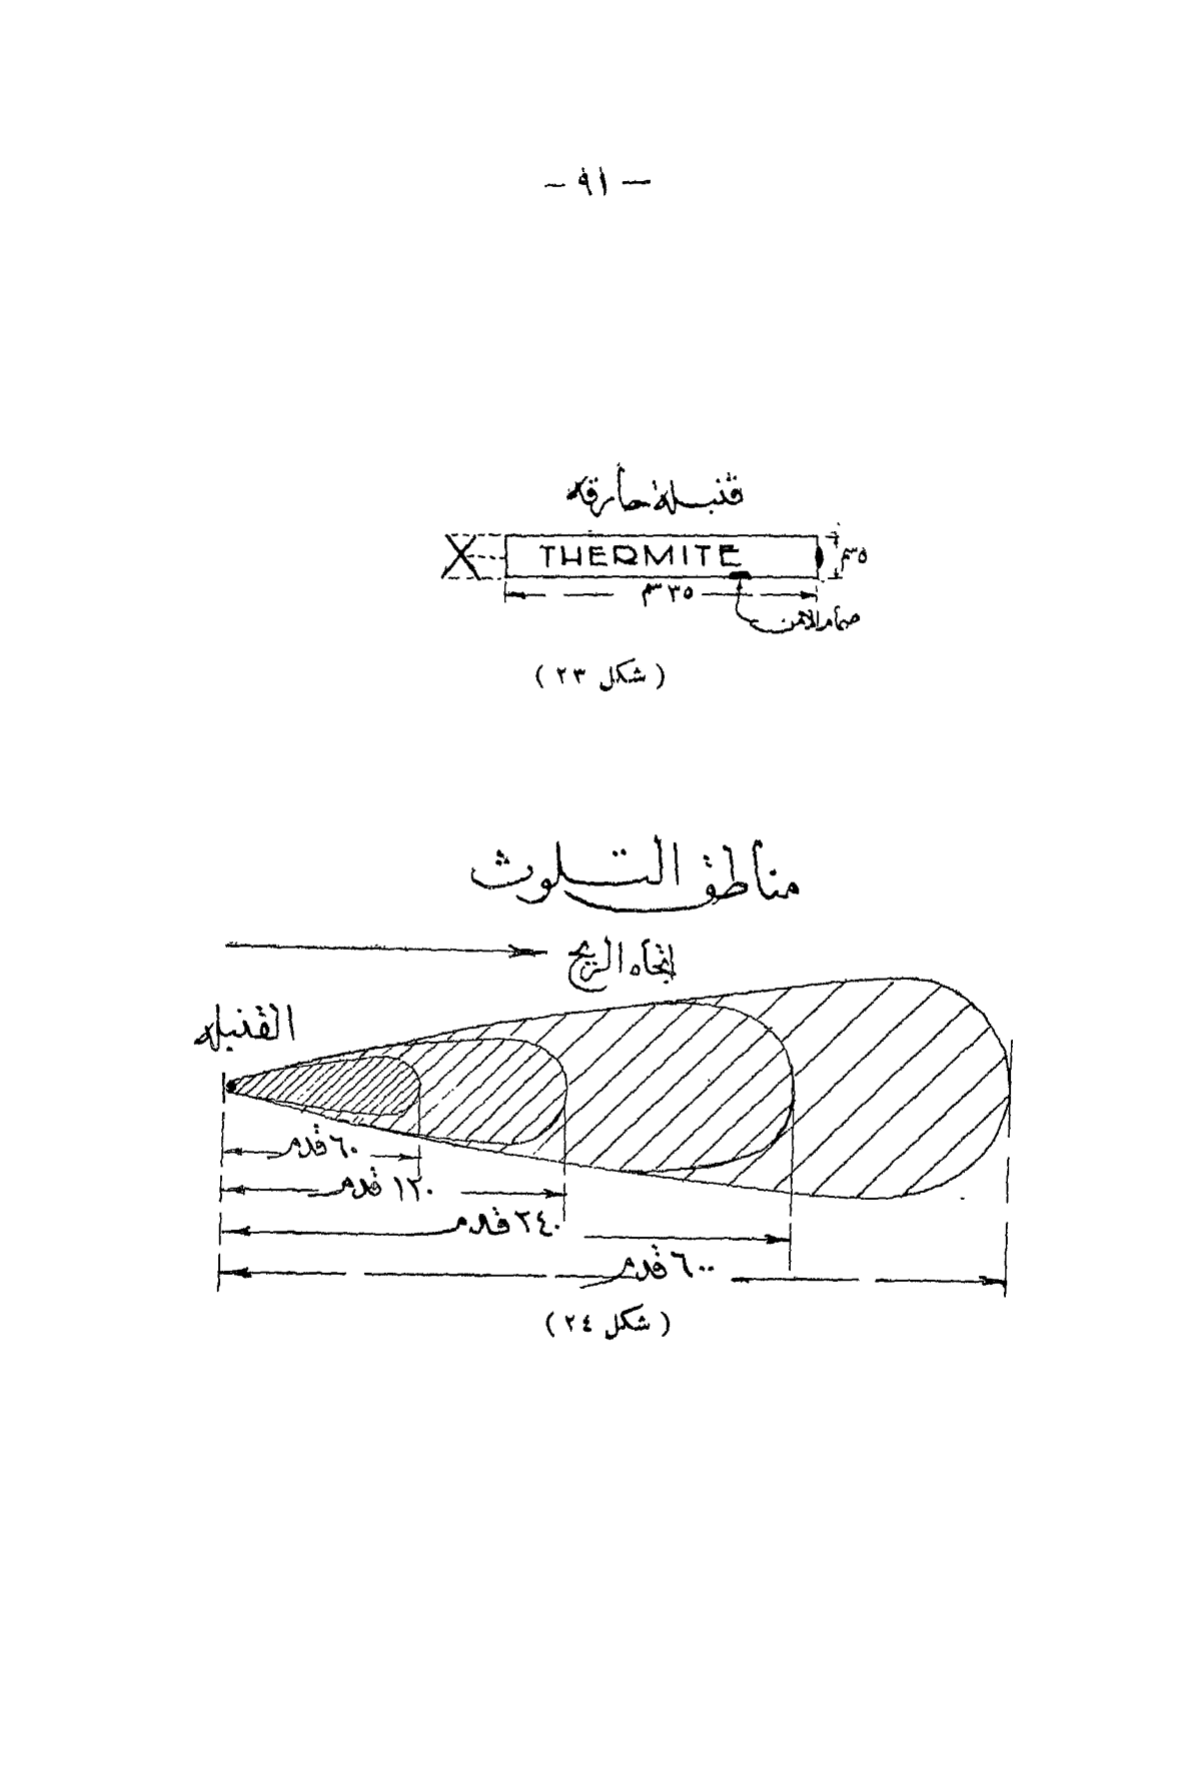 — ٩١ —
قنبلة حارقه
THERMITE
٥سم
٣٥سم
صمام الامن
( شكل ٢٣ )
مناطق التلوث
اتجاه الريح
القنبله
٦٠ قدم
١٢٠ قدم
٢٤٠ قدم
٦٠٠ قدم
( شكل ٢٤ )